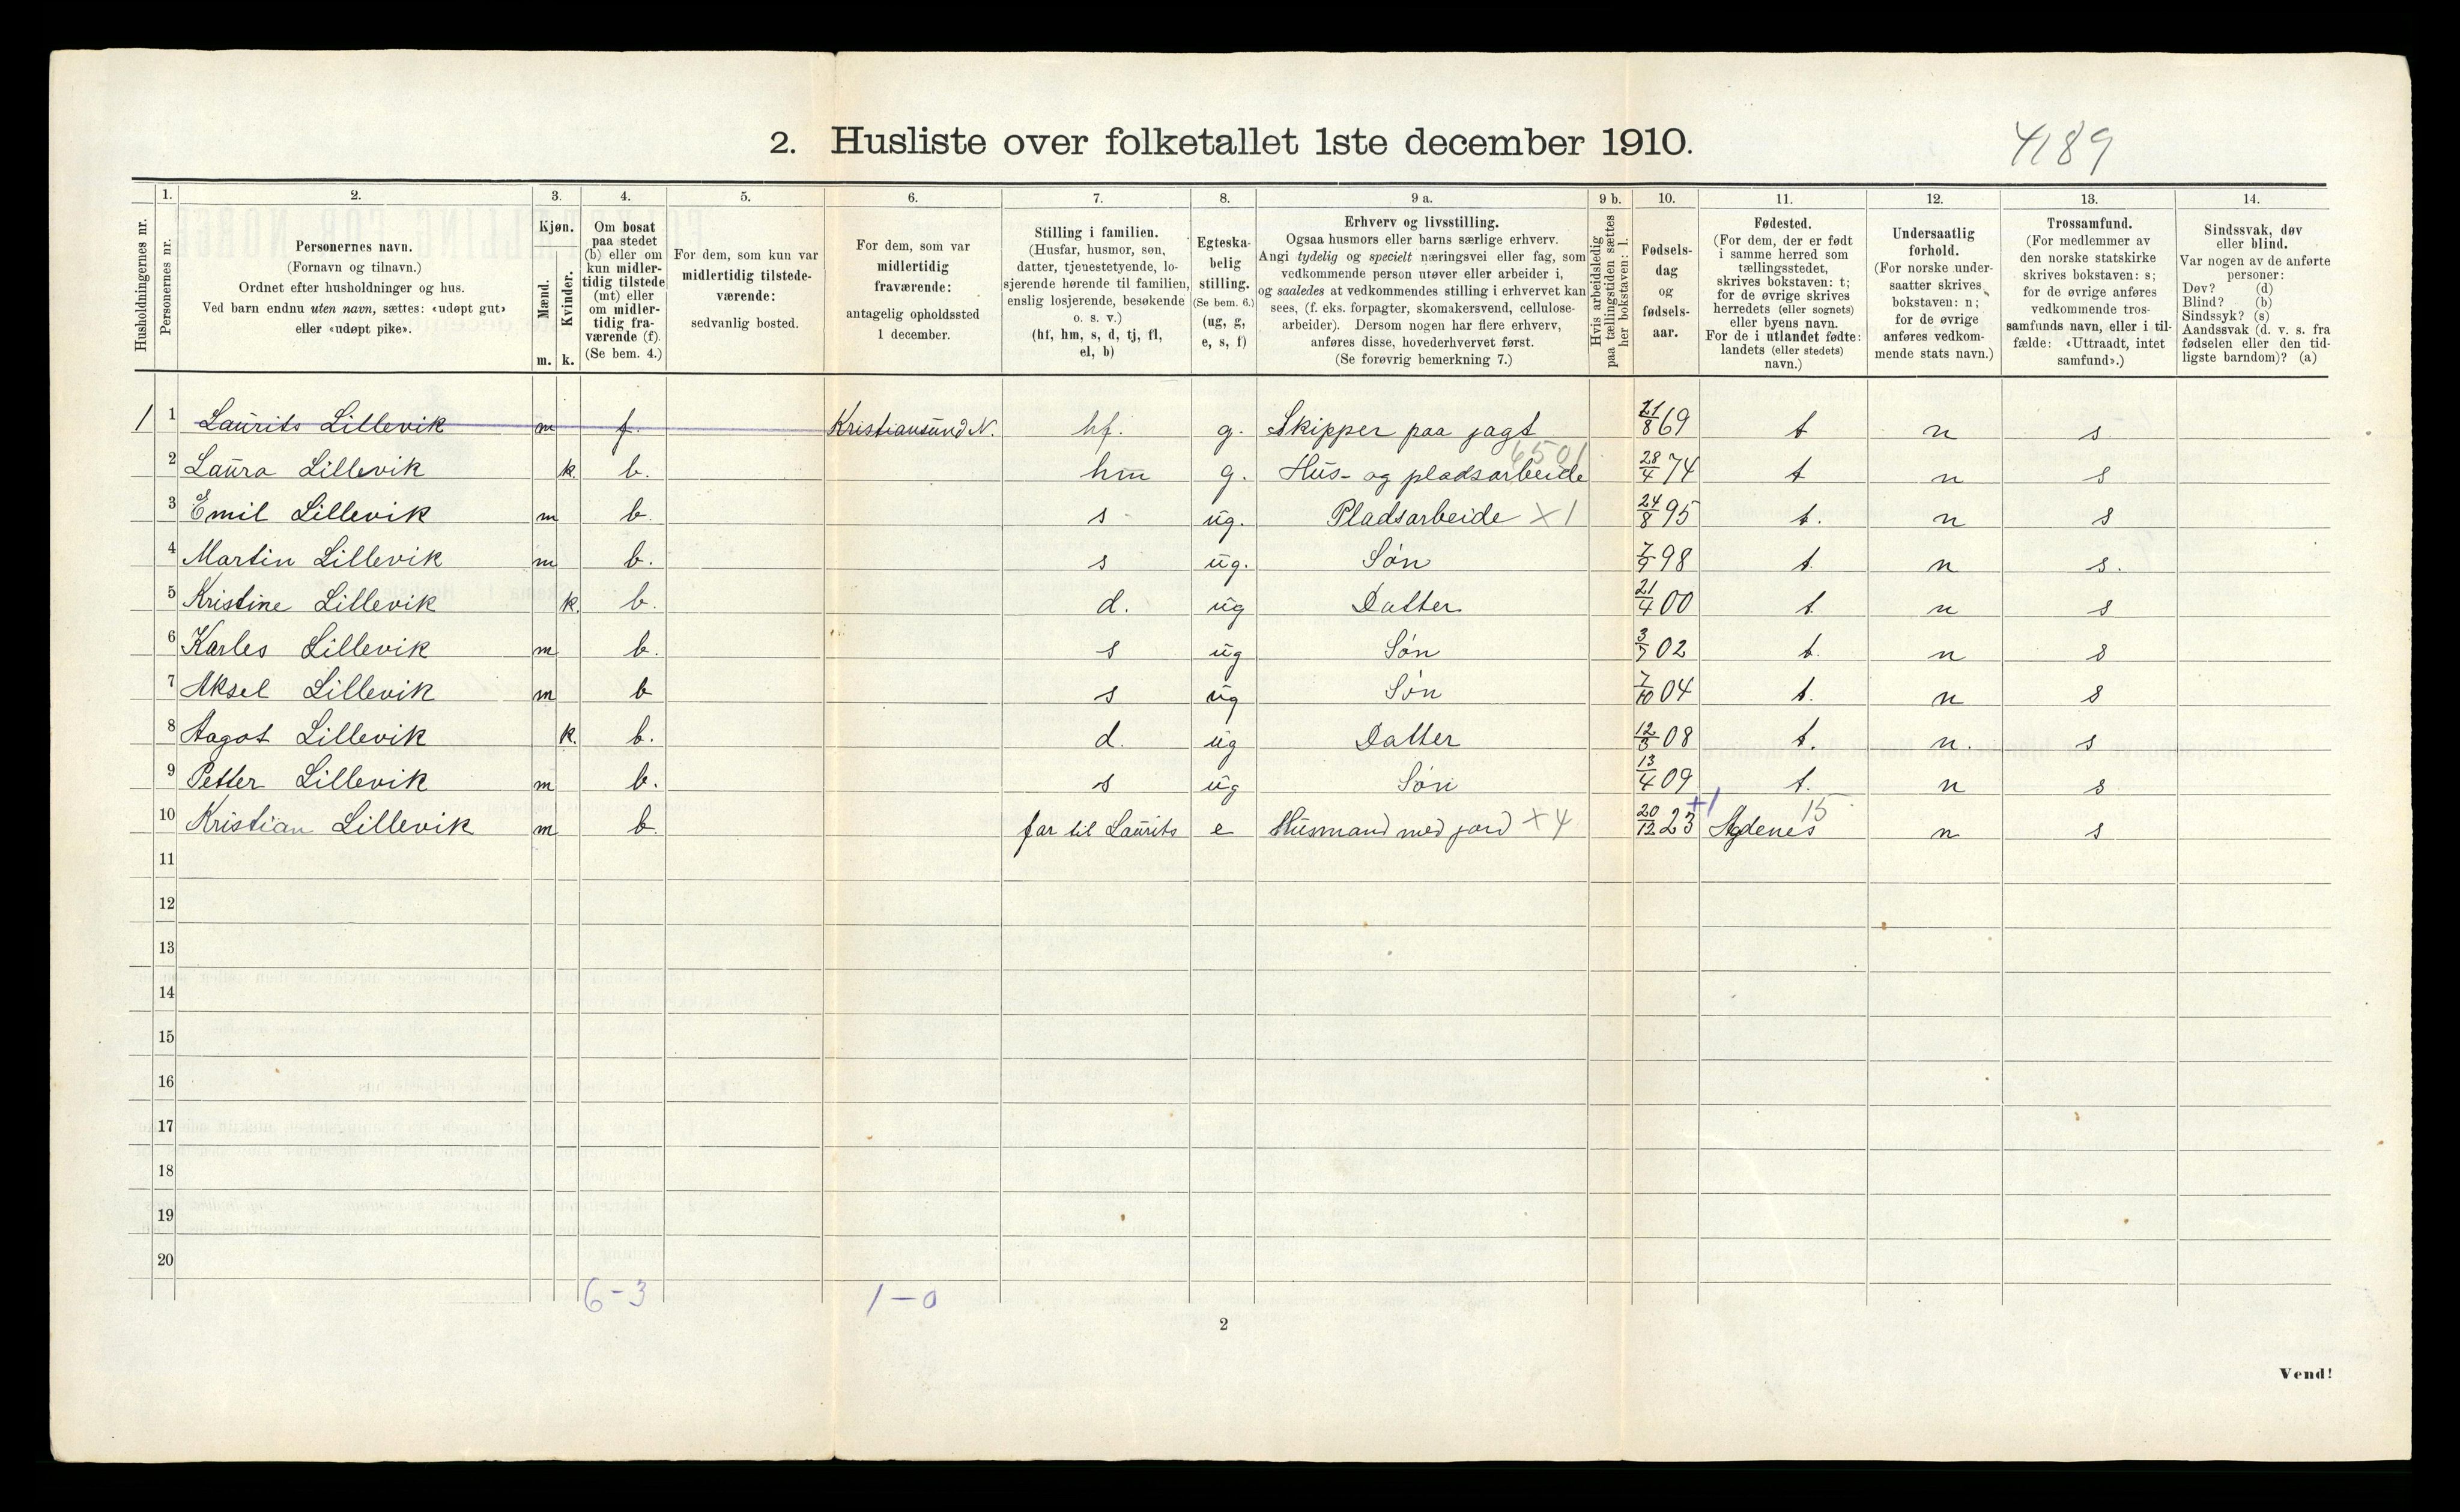 2. Husliste over folketallet 1ste december 1910.
4189
Husholdningernes nr.
1.
Personernes nr.
2.
Personernes navn.
(Fornavn og tilnavn.)
Ordnet efter husholdninger og hus.
Ved barn endnu uten navn, sættes: «udøpt gut»
eller «udøpt pike».
3.
Kjøn.
Mænd.
Kvinder.
m. k.
4.
Om bosat
paa stedet
(b) eller om
kun midler-
tidig tilstede
(mt) eller
om midler-
tidig fra-
værende (f).
(Se bem. 4.)
5.
For dem, som kun var
midlertidig tilstede-
værende:
sedvanlig bosted.
6.
For dem, som var
midlertidig
fraværende:
antagelig opholdssted
1 december.
7.
Stilling i familien.
(Husfar, husmor, søn,
datter, tjenestetyende, lo-
sjerende hørende til familien,
enslig losjerende, besøkende
o. s. v.)
(hf, hm, s, d, tj, fl,
el, b)
8.
Egteska-
belig
stilling.
(Se bem. 6.)
(ug, g,
e, s, f)
9 a.
Erhverv og livsstilling.
Ogsaa husmors eller barns særlige erhverv.
Angi tydelig og specielt næringsvei eller fag, som
vedkommende person utøver eller arbeider i,
og saaledes at vedkommendes stilling i erhvervet kan
sees, (f. eks. forpagter, skomakersvend, cellulose-
arbeider). Dersom nogen har flere erhverv,
anføres disse, hovederhvervet først.
(Se forøvrig bemerkning 7.)
9 b.
Hvis arbeidsledig
paa tællingstiden sættes
her bokstaven: l.
10.
Fødsels-
dag
og
fødsels-
aar.
11.
Fødested.
(For dem, der er født
i samme herred som
tællingsstedet,
skrives bokstaven: t;
for de øvrige skrives
herredets (eller sognets)
eller byens navn.
For de i utlandet fødte:
landets (eller stedets)
navn.)
12.
Undersaatlig
forhold.
(For norske under-
saatter skrives
bokstaven: n;
for de øvrige
anføres vedkom-
mende stats navn.)
13.
Trossamfund.
(For medlemmer av
den norske statskirke
skrives bokstaven: s;
for de øvrige anføres
vedkommende tros-
samfunds navn, eller i til-
fælde: «Uttraadt, intet
samfund».)
14.
Sindssvak, døv
eller blind.
Var nogen av de anførte
personer:
Døv? (d)
Blind? (b)
Sindssyk? (s)
Aandssvak (d. v. s. fra
fødselen eller den tid-
ligste barndom)? (a)
1 1 Laurits Lillevik m f. Kristiansund N. hf. g. Skipper paa jagt 21/8 69 t n s
6501
2 Laura Lillevik k. b. hm g. Hus- og pladsarbeide 28/4 74 t n s
3 Emil Lillevik m b. s ug. Pladsarbeide X 1 24/8 95 t. n s
4 Martin Lillevik m b. s ug. Søn 7/9 98 t. n s.
5 Kristine Lillevik k. b. d. ug Datter 21/4 00 t. n s
6 Karles Lillevik m b. s ug Søn 3/7 02 t. n s
7 Aksel Lillevik m b s ug Søn 7/10 04 t. n s
8 Aagot Lillevik k. b. d. ug Datter 12/3 08 t. n. s
9 Petter Lillevik m b. s ug Søn 13/4 09 t. n s
+1 15
10 Kristian Lillevik m b. far til Laurits e Husmand med jord X 4 20/12 23 Agdenes n s
11
12
13
14
15
16
17
18
19
20
6-3 1-0
2
Vend!